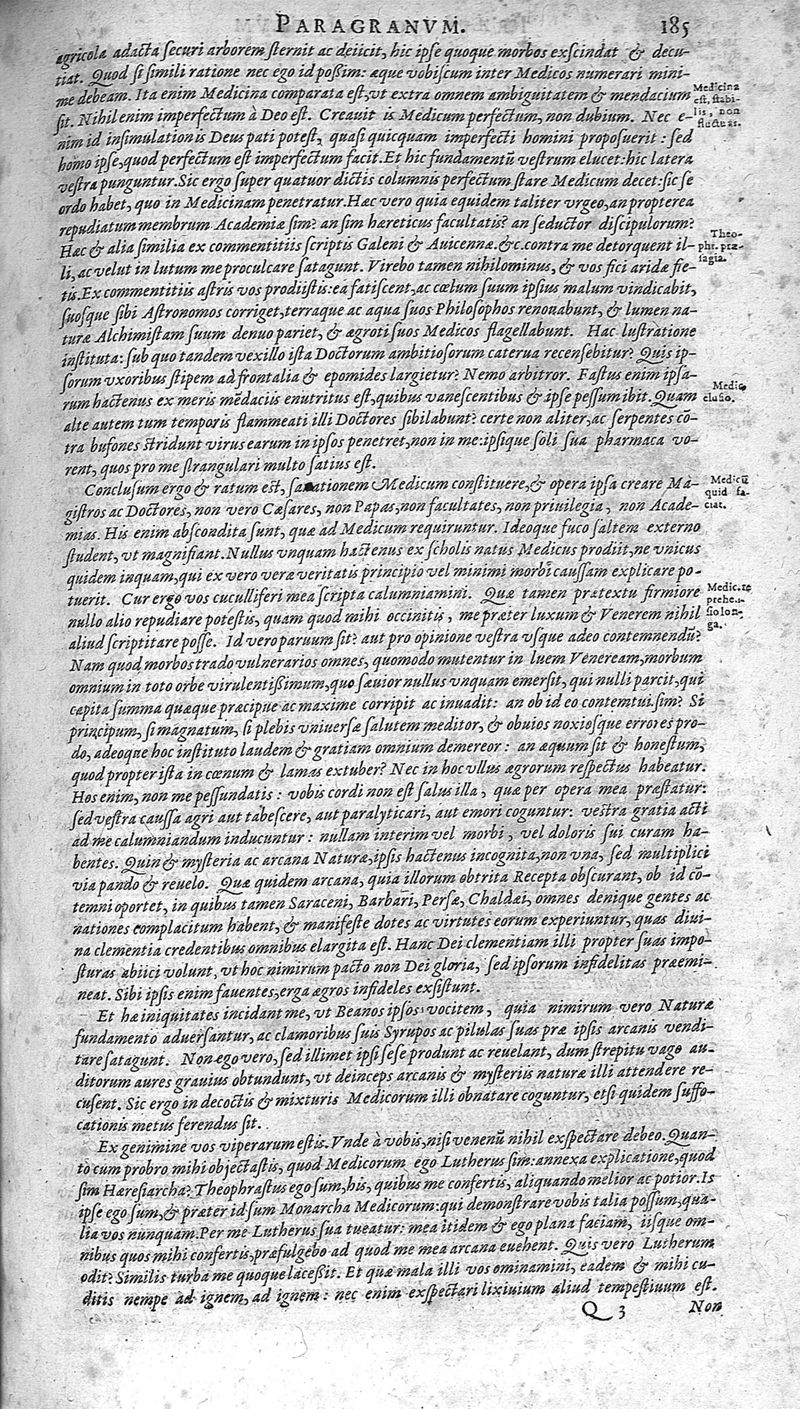 PARAGRANVM. 185
agricola adacta securi arborem sternit ac deiicit, hic ipse quoque morbos exscindat & decu-
tiat. Quod si simili ratione nec ego id poßim: æque vobiscum inter Medicos numerari mini-
me debeam. Ita enim Medicina comparata est, vt extra omnem ambiguitatem & mendacium
sit. Nihil enim imperfectum à Deo est. Creauit is Medicum perfectum, non dubium. Nec e-
nim id insimulationis Deus pati potest, quasi quicquam imperfecti homini proposuerit: sed
homo ipse, quod perfectum est imperfectum facit. Et hic fundamentũ vestrum elucet: hic latera
vestra punguntur. Sic ergo super quatuor dictis columnis perfectum stare Medicum decet: sic se
ordo habet, quo in Medicinam penetratur. Hæc vero quia equidem taliter vrgeo, an propterea
repudiatum membrum Academiæ sim? an sim hæreticus facultatis? an seductor discipulorum?
Hæc & alia similia ex commentitiis scriptis Galeni & Auicennæ. &c. contra me detorquent il-
li, ac velut in lutum me proculcare satagunt. Virebo tamen nihilominus, & vos fici aridæ fie-
tis. Ex commentitiis astris vos prodiistis: ea fatiscent, ac cœlum suum ipsius malum vindicabit,
suosque sibi Astronomos corriget, terraque ac aqua suos Philosophos renouabunt, & lumen na-
turæ Alchimistam suum denuo pariet, & ægroti suos Medicos flagellabunt. Hac lustratione
instituta: sub quo tandem vexillo ista Doctorum ambitiosorum caterua recensebitur? Quis ip-
sorum vxoribus stipem ad frontalia & epomides largietur? Nemo arbitror. Fastus enim ipsa-
rum hactenus ex meris mẽdaciis enutritus est, quibus vanescentibus & ipse pessum ibit. Quam
alte autem tum temporis flammeati illi Doctores sibilabunt? certe non aliter, ac serpentes cõ-
tra bufones stridunt virus earum in ipsos penetret, non in me: ipsique soli sua pharmaca vo-
rent, quos pro me strangulari multo satius est.
Medicina
est, stabi-
lis, non
fluctuãs.
Theo-
phr. præ-
sagia.
Medic.
elusio.
Conclusum ergo & ratum est, sanationem Medicum constituere, & opera ipsa creare Ma-
gistros ac Doctores, non vero Cæsares, non Papas, non facultates, non priuilegia, non Acade-
mias. His enim abscondita sunt, quæ ad Medicum requiruntur. Ideoque fuco saltem externo
student, vt magnifiant. Nullus vnquam hactenus ex scholis natus Medicus prodiit, ne vnicus
quidem inquam, qui ex vero veræ veritatis principio vel minimi morbi caussam explicare po-
tuerit. Cur ergo vos cuculliferi mea scripta calumniamini. Quæ tamen prætextu firmiore
nullo alio repudiare potestis, quam quod mihi occinitis, me præter luxum & Venerem nihil
aliud scriptitare posse. Id vero paruum sit? aut pro opinione vestra vsque adeo contemnendũ?
Nam quod morbos trado vulnerarios omnes, quomodo mutentur in luem Veneream, morbum
omnium in toto orbe virulentißimum, quo sæuior nullus vnquam emersit, qui nulli parcit, qui
capita summa quæque præcipue ac maxime corripit ac inuadit: an ob id eo contemtui sim? Si
principum, si magnatum, si plebis vniuersæ salutem meditor, & obuios noxiosque errores pro-
do, adeoque hoc instituto laudem & gratiam omnium demereor: an æquum sit & honestum,
quod propter ista in cœnum & lamas extuber? Nec in hoc vllus ægrorum respectus habeatur.
Hos enim, non me pessundatis: vobis cordi non est salus illa, quæ per opera mea præstatur:
sed vestra caussa ægri aut tabescere, aut paralyticari, aut emori coguntur: vestra gratia acti
ad me calumniandum inducuntur: nullam interim vel morbi, vel doloris sui curam ha-
bentes. Quin & mysteria ac arcana Naturæ, ipsis hactenus incognita, non vna, sed multiplici
via pando & reuelo. Quæ quidem arcana, quia illorum obtrita Recepta obscurant, ob id cõ-
temni oportet, in quibus tamen Saraceni, Barbari, Persæ, Chaldæi, omnes denique gentes ac
nationes complacitum habent, & manifeste dotes ac virtutes eorum experiuntur, quas diui-
na clementia credentibus omnibus elargita est. Hanc Dei clementiam illi propter suas impo-
sturas abiici volunt, vt hoc nimirum pacto non Dei gloria, sed ipsorum infidelitas præemi-
neat. Sibi ipsis enim fauentes, erga ægros infideles exsistunt.
Medicũ
quid fa-
ciat.
Medic. re
prehen-
sio lon-
ga.
Et hæ iniquitates incidant me, vt Beanos ipsos vocitem, quia nimirum vero Naturæ
fundamento aduersantur, ac clamoribus suis Syrupos ac pilulas suas præ ipsis arcanis vendi-
tare satagunt. Non ego vero, sed illimet ipsi sese produnt ac reuelant, dum strepitu vago au-
ditorum aures grauius obtundunt, vt deinceps arcanis & mysteriis naturæ illi attendere re-
cusent. Sic ergo in decoctis & mixturis Medicorum illi obnatare coguntur, etsi quidem suffo-
cationis metus ferendus sit.
Ex genimine vos viperarum estis. Vnde à vobis, nisi venenũ nihil exspectare debeo. Quan-
to cum probro mihi objectastis, quod Medicorum ego Lutherus sim: annexa explicatione, quod
sim Hæresiarcha? Theophrastus ego sum, his, quibus me confertis, aliquando melior ac potior. Is
ipse ego sum, & præter id sum Monarcha Medicorum: qui demonstrare vobis talia possum, qua-
lia vos nunquam. Per me Lutherus sua tueatur: mea itidem & ego plana faciam, iisque om-
nibus quos mihi confertis, præfulgebo ad quod me mea arcana euehent. Quis vero Lutherum
odit? Similis turba me quoque laceßit. Et quæ mala illi vos ominamini, eadem & mihi cu-
ditis nempe ad ignem, ad ignem: nec enim exspectari lixiuium aliud tempestiuum est.
Q 3 Non